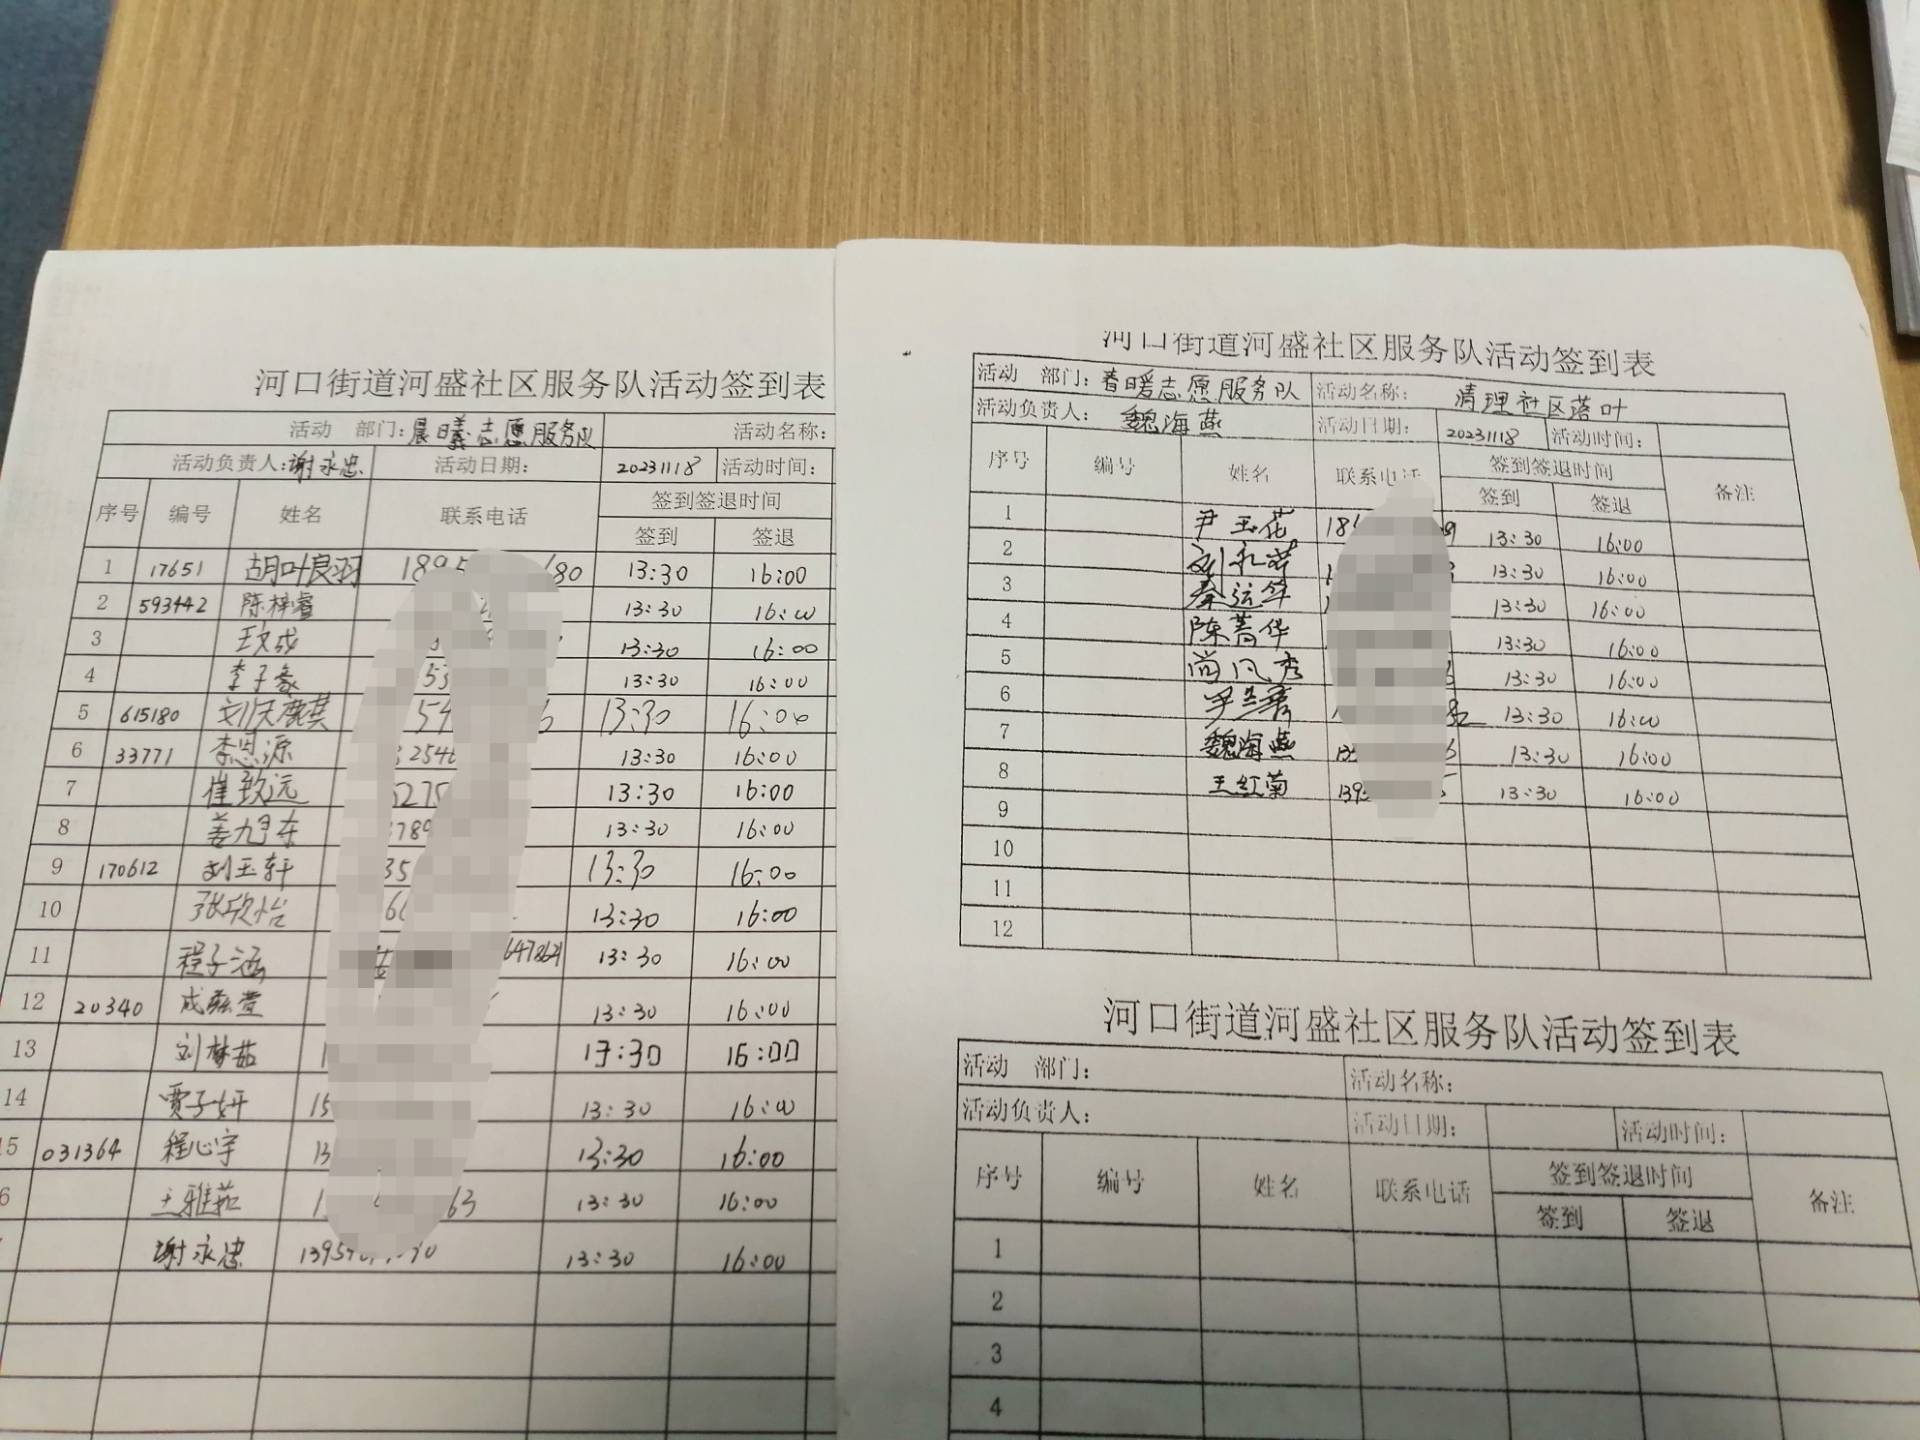 河口街道河盛社区服务队活动签到表
活动 部门：晨曦志愿服务队 活动名称：
活动负责人：谢永忠 活动日期： 20231118 活动时间：
序号 编号 姓名 联系电话 签到签退时间
签到 签退
1 17651 胡叶良羽 13:30 16:00
2 593442 陈梓睿 13:30 16:00
3 13:30 16:00
4 李子豪 13:30 16:00
5 615180 刘天麒 13:30 16:00
6 33771 李思源 13:30 16:00
7 崔致远 13:30 16:00
8 13:30 16:00
9 170612 刘玉轩 13:30 16:00
10 张欣怡 13:30 16:00
11 程子涵 13:30 16:00
12 20340 13:30 16:00
13 刘梦茹 13:30 16:00
14 贾子妍 13:30 16:00
15 031364 程心宇 13:30 16:00
6 王雅茹 13:30 16:00
谢永忠 13:30 16:00
河口街道河盛社区服务队活动签到表
活动 部门：春暖志愿服务队 活动名称： 清理社区落叶
活动负责人： 魏海燕 活动日期： 20231118 活动时间：
序号 编号 姓名 联系电话 签到签退时间 备注
签到 签退
1 尹玉花 13:30 16:00
2 13:30 16:00
3 秦运华 13:30 16:00
4 陈菁华 13:30 16:00
5 尚凡秀 13:30 16:00
6 13:30 16:00
7 魏海燕 13:30 16:00
8 王红菊 13:30 16:00
9
10
11
12
河口街道河盛社区服务队活动签到表
活动 部门： 活动名称：
活动负责人： 活动日期： 活动时间：
序号 编号 姓名 联系电话 签到签退时间 备注
签到 签退
1
2
3
4